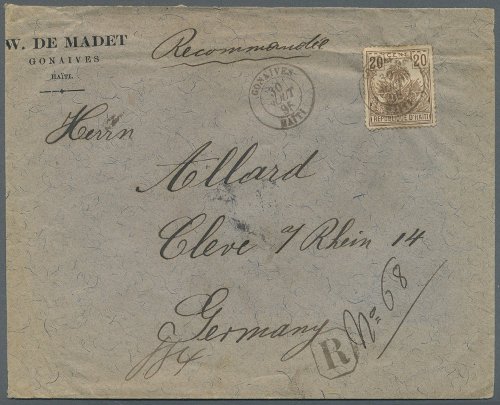 W. DE MADET
GONAIVES
HAÏTI.
Recommandée
GONAIVES
95
HAÏTI
20 20
REPUBLIQUE D'HAITI
Herrn
Allard
Cleve a/ Rhein 14
Germany
R No 68